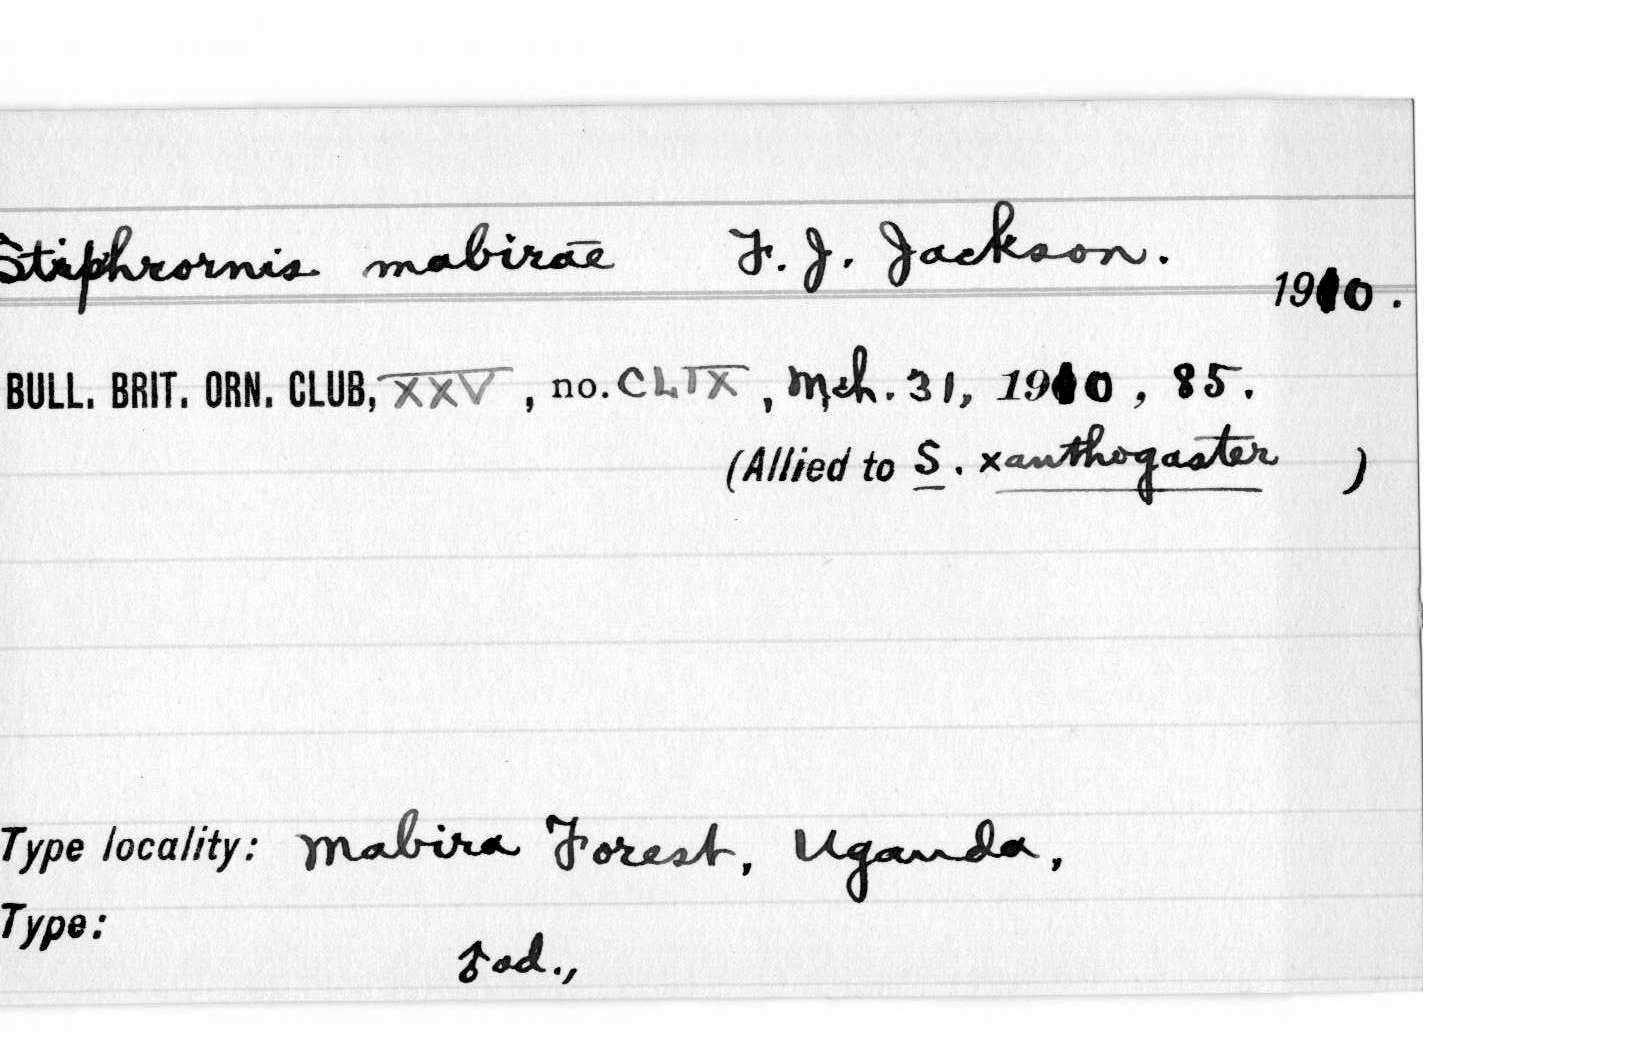 Stiphrornis mabirae F. J. Jackson.
1910.
BULL. BRIT. ORN. CLUB, XXV, no. CLIX, Mch. 31, 1910, 85.
(Allied to S. xanthogaster )
Type locality: Mabira Forest, Uganda,
Type:
♂ ad.,